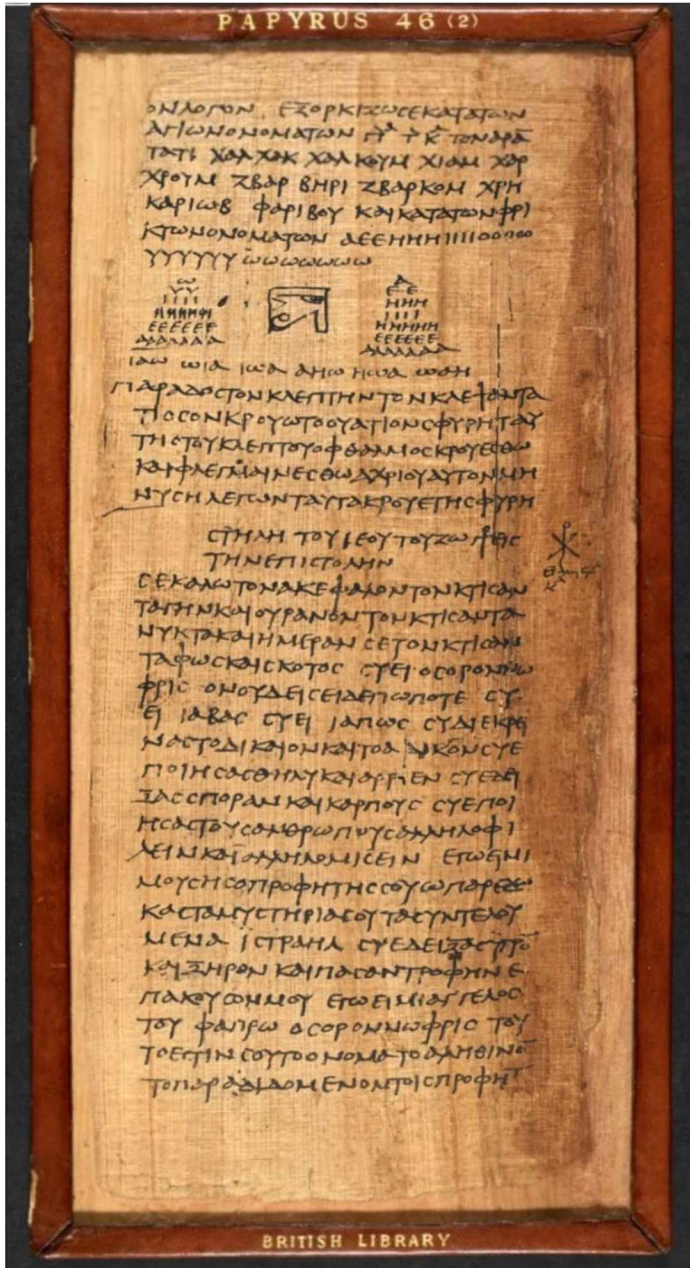 PAPYRUS 46 (2)
ΟΝΛΟΓΟΝ ΕΞΟΡΚΙΖΩΣΕΚΑΤΑΤΩΝ
ΑΓΙΩΝΟΝΟΜΑΤΩΝ
ΤΑΤΙ ΧΑΛΧΑΚ ΧΑΛΚΟΥΜ ΧΙΑΜ ΧΑΡ
ΧΡΟΥΜ ΖΒΑΡ ΒΗΡΙ ΖΒΑΡΚΟΜ ΧΡΗ
ΚΑΡΙΩΒ ΦΑΡΙΒΟΥ ΚΑΙΚΑΤΑΤΩΝΦΡΙ
ΚΤΩΝΟΝΟΜΑΤΩΝ ΑΕΕΗΗΗΙΙΙΙΟΟΟΟΟ
ΥΥΥΥΥΥ ωωωωωωω
ω
ΥΥ
ΙΙΙΙ
ΕΕΕΕΕΕ
ΑΑΑΑΑΑΑ
Α
ΕΕ
ΗΗΗ
ΙΙΙΙ
ΗΗΗΗΗ
ΕΕΕΕΕΕ
ΑΑΑΑΑΑΑ
ΙΑω ωΙΑ ΙωΑ ΑΗω ΗωΑ ωΑΗ
ΠΑΡΑΔΟΣΤΟΝΚΛΕΠΤΗΝΤΟΝΚΛΕΨΑΝΤΑ
ΤΙΟΣΟΝΚΡΟΥΩΤΟΟΥΑΤΙΟΝΣΦΥΡΗΤΑΥ
ΤΗΟΤΟΥΚΛΕΠΤΟΥΟΦΘΑΛΜΟΣΚΡΟΥΕΣΘΩ
ΚΑΙΦΛΕΓΜΑΙΝΕΣΘΩΑΧΡΙΟΥΑΥΤΟΝΜΗ
ΝΥΣΗ ΛΕΓΩΝΤΑΥΤΑΚΡΟΥΕΤΗΣΦΥΡΗ
ΣΤΗΛΗ ΤΟΥΙΕΟΥΤΟΥΖΩΓΡ ΕΙΣ
ΤΗΝΕΠΙΣΤΟΛΗΝ
ΣΕΚΑΛΩΤΟΝΑΚΕΦΑΛΟΝΤΟΝΚΤΙΣΑΝ
ΤΑΓΗΝΚΑΙΟΥΡΑΝΟΝΤΟΝΚΤΙΣΑΝΤΑ
ΝΥΚΤΑΚΑΙΗΜΕΡΑΝ ΣΕΤΟΝΚΤΙΣΑΝ
ΤΑΦΩΣΚΑΙΣΚΟΤΟΣ ΣΥΕΙΟΣΟΡΟΝΝΩ
ΦΡΙΣ ΟΝΟΥΔΕΙΣΕΙΔΕΠΩΠΟΤΕ ΣΥ
ΕΙ ΙΑΒΑΣ ΣΥΕΙ ΙΑΠΩΣ ΣΥΔΙΕΚΡΕΙ
ΝΑΣΤΟΔΙΚΑΙΟΝΚΑΙΤΟΑΔΙΚΟΝΣΥΕ
ΠΟΙΗΣΑΣΘΗΛΥΚΑΙΑΡΡΕΝ ΣΥΕΔΕΙ
ΞΑΣΣΠΟΡΑΝΚΑΙΚΑΡΠΟΥΣ ΣΥΕΠΟΙ
ΗΣΑΣΤΟΥΣΑΝΘΡΩΠΟΥΣΑΛΛΗΛΟΦΙ
ΛΕΙΝΚΑΙΑΛΛΗΛΟΜΙΣΕΙΝ ΕΓΩΕΙΜΙ
ΜΟΥΣΗΣΟΠΡΟΦΗΤΗΣΣΟΥΩΠΑΡΕΔΩ
ΚΑΣΤΑΜΥΣΤΗΡΙΑΣΟΥΤΑΣΥΝΤΕΛΟΥ
ΜΕΝΑ ΙΣΤΡΑΗΛ ΣΥΕΔΕΙΞΑΣΥΓΡΟ
ΚΑΙΞΗΡΟΝ ΚΑΙΠΑΣΑΝΤΡΟΦΗΝ Ε
ΠΑΚΟΥΣΟΝΜΟΥ ΕΓΩΕΙΜΙΑΓΓΕΛΟΣ
ΤΟΥ ΦΑΠΡΩ ΟΣΟΡΟΝΝΩΦΡΙΣ ΤΟΥ
ΤΟΕΣΤΙΝΣΟΥΤΟΟΝΟΜΑΤΟΑΛΗΘΙΝΟ
ΤΟΠΑΡΑΔΙΔΟΜΕΝΟΝΤΟΙΣΠΡΟΦΗΤ
BRITISH LIBRARY